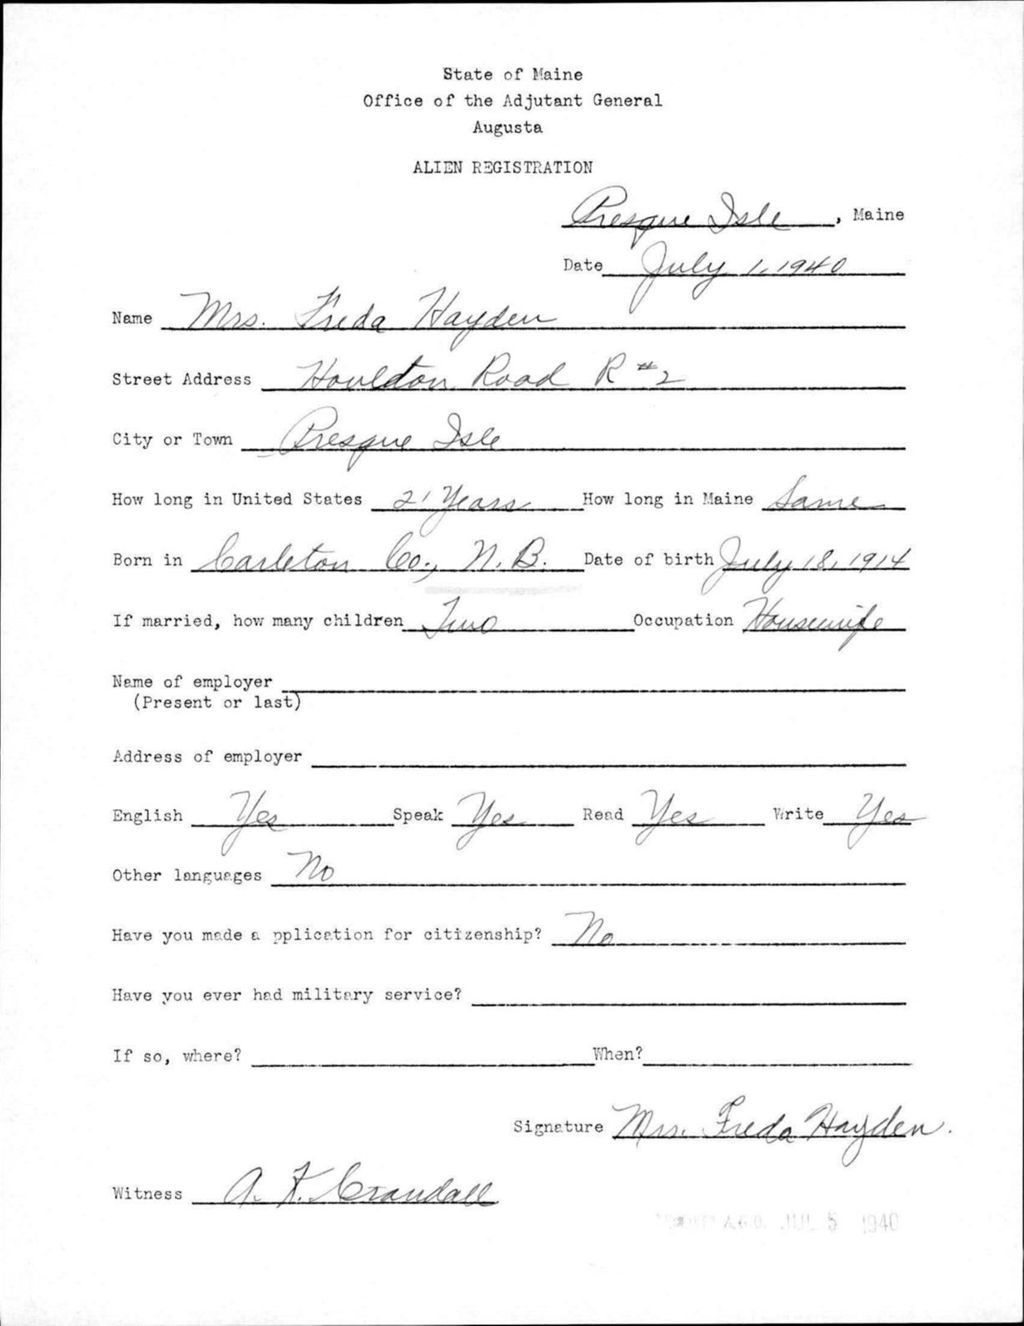 State of Maine
Office of the Adjutant General
Augusta
ALIEN REGISTRATION
Presque Isle, Maine
Date July 1, 1940
Name Mrs. Freda Hayden
Street Address Houlton Road R #2
City or Town Presque Isle
How long in United States 21 Years How long in Maine Same
Born in Carleton Co., N.B. Date of birth July 18, 1914
If married, how many children Two Occupation Housewife
Name of employer
(Present or last)
Address of employer
English Yes Speak Yes Read Yes Write Yes
Other languages No
Have you made a pplication for citizenship? No
Have you ever had military service?
If so, where? When?
Signature Mrs. Freda Hayden.
Witness A. K. Crandall
A.G.O. JUL 5 1940